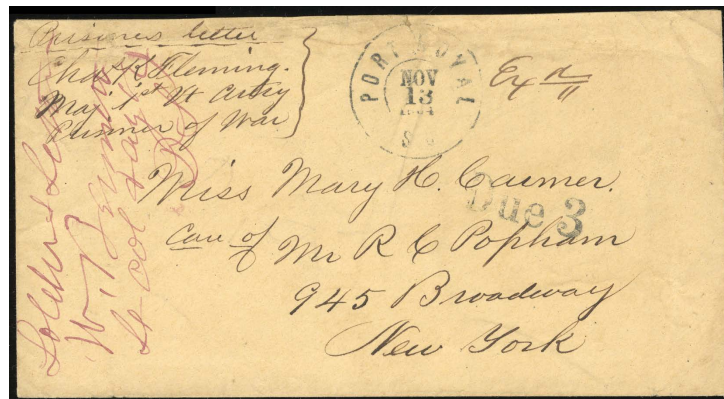 Prisoners letter
Chas K Fleming.
Maj 1st Vt Arty
Prisoner of War
PORT ROYAL
NOV
13
S
Exd
Miss Mary H. Caemer.
Due 3
Care of Mr R C Popham
945 Broadway
New York
Soldier's Letter
W.
Lt Col